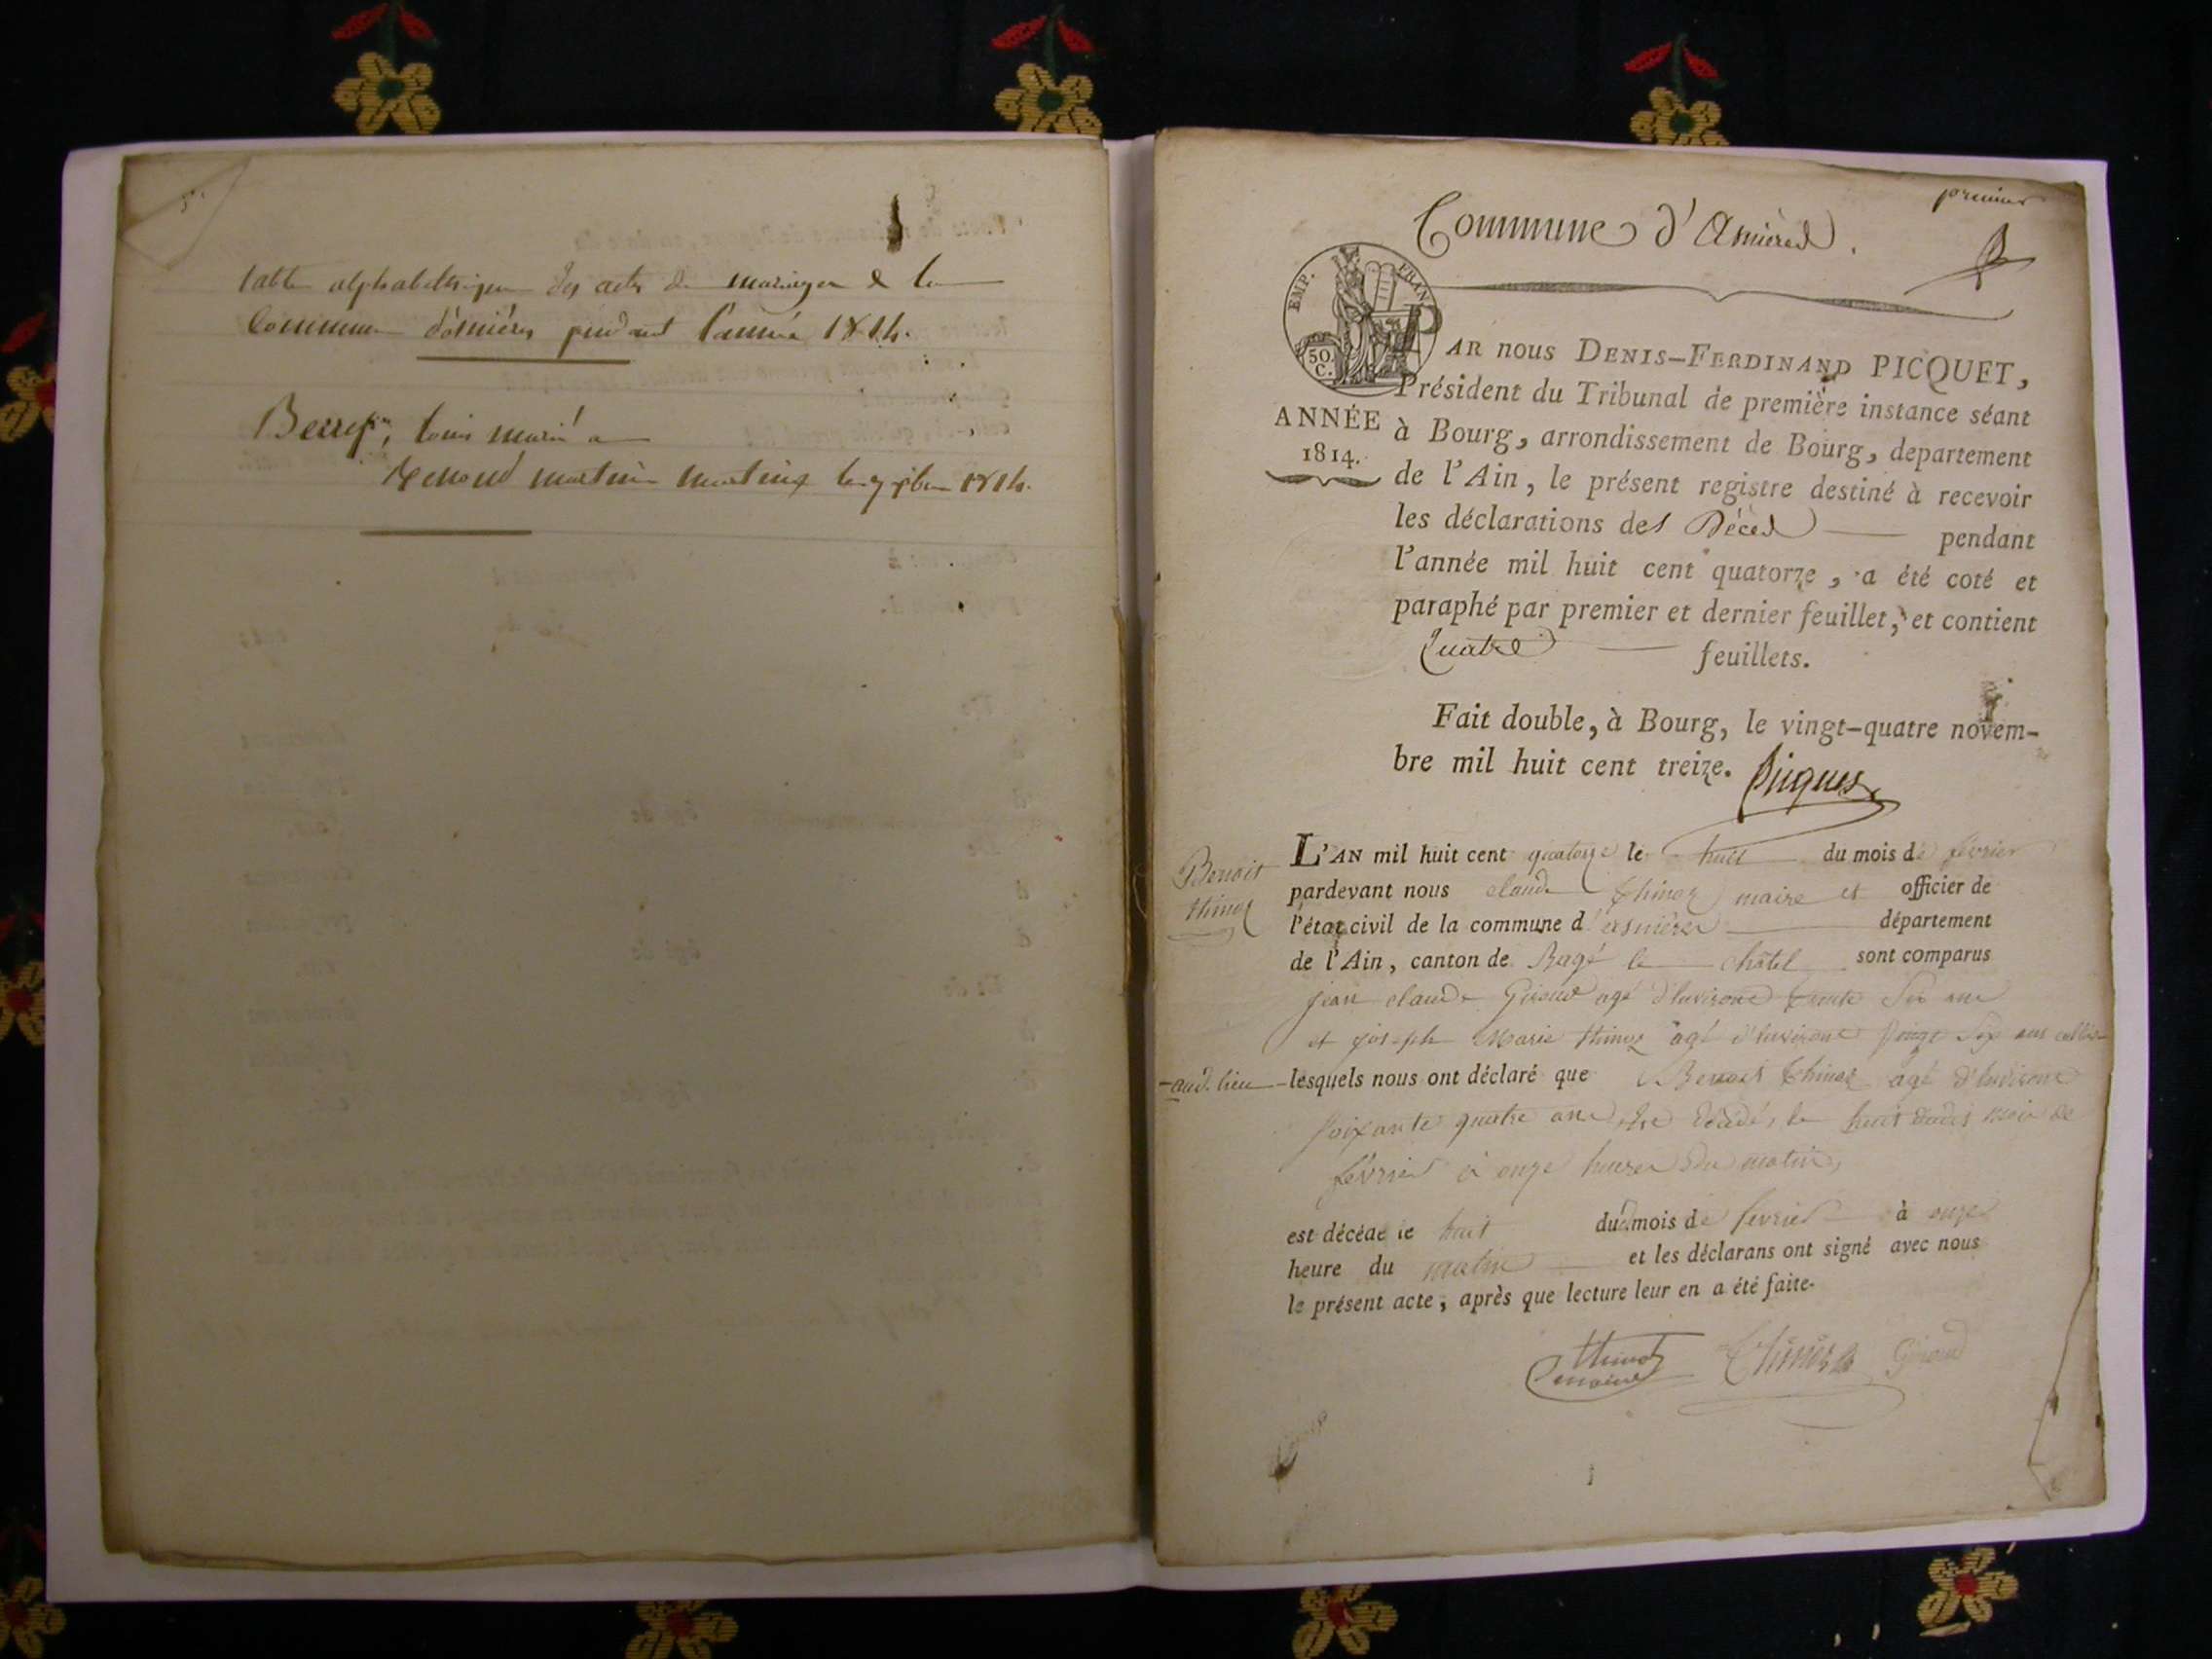 table alphabetique des actes de mariages de la
Commune d'asnières pendant l'année 1814.
Louis marié a
Renoud martine le 1814.
premier
Commune d'Asnieres.
EMP. FRAN
50. C.
PAR nous DENIS-FERDINAND PICQUET,
Président du Tribunal de première instance séant
ANNÉE
1814.
à Bourg, arrondissement de Bourg, departement
de l'Ain, le présent registre destiné à recevoir
les déclarations des Décès pendant
l'année mil huit cent quatorze, a été coté et
paraphé par premier et dernier feuillet, et contient
Quatre feuillets.
Fait double, à Bourg, le vingt-quatre novem-
bre mil huit cent treize. Picquet
Benoit
thinoz
L'AN mil huit cent quatorze le huit du mois de fevrier
pardevant nous claude thinoz maire et officier de
l'état civil de la commune d'asnieres département
de l'Ain, canton de Bagé le châtel sont comparus
jean claude Giroud agé d'environs trente six ans
et joseph Marie thinoz agé d'environs vingt six ans
aud. lieu lesquels nous ont déclaré que Benoit thinoz agé d'environs
soixante quatre ans, le huit dudit mois de
février à onze heures du matin,
est décédé le huit dud. mois de fevrier à onze
heure du matin et les déclarans ont signé avec nous
le présent acte, après que lecture leur en a été faite.
thinoz maire thinoz Giroud